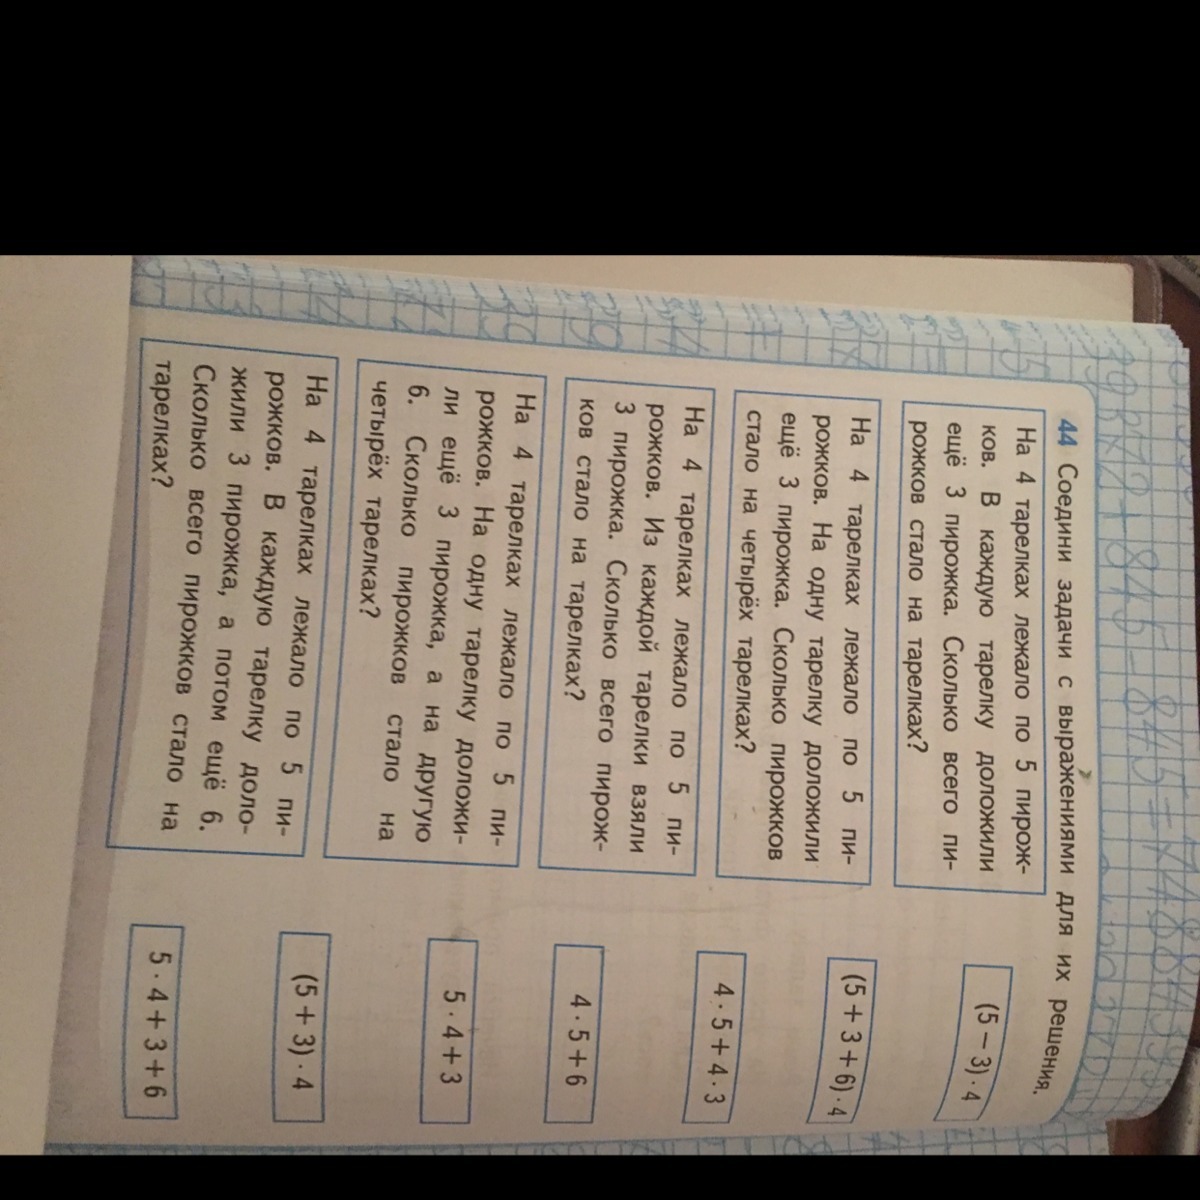 44 Соедини задачи с выражениями для их решения.
На 4 тарелках лежало по 5 пирож-
ков. В каждую тарелку доложили
ещё 3 пирожка. Сколько всего пи-
рожков стало на тарелках?
На 4 тарелках лежало по 5 пи-
рожков. На одну тарелку доложили
ещё 3 пирожка. Сколько пирожков
стало на четырёх тарелках?
На 4 тарелках лежало по 5 пи-
рожков. Из каждой тарелки взяли
3 пирожка. Сколько всего пирож-
ков стало на тарелках?
На 4 тарелках лежало по 5 пи-
рожков. На одну тарелку доложи-
ли ещё 3 пирожка, а на другую
6. Сколько пирожков стало на
четырёх тарелках?
На 4 тарелках лежало по 5 пи-
рожков. В каждую тарелку доло-
жили 3 пирожка, а потом ещё 6.
Сколько всего пирожков стало на
тарелках?
(5 − 3) · 4
(5 + 3 + 6) · 4
4 · 5 + 4 · 3
4 · 5 + 6
5 · 4 + 3
(5 + 3) · 4
5 · 4 + 3 + 6